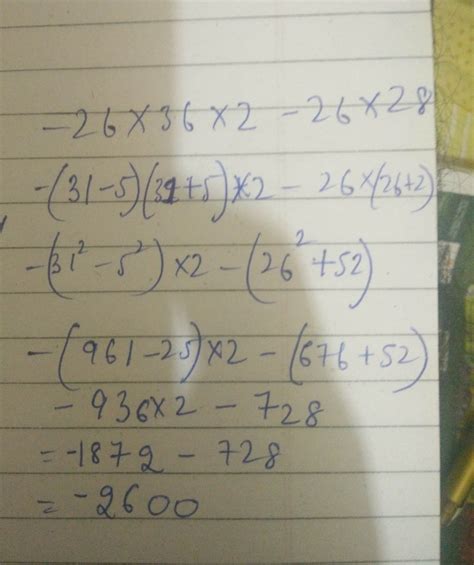 -26×36×2 -26×28
-(31-5)(31+5)×2 - 26×(26+2)
-(31²-5²)×2-(26²+52)
-(961-25)×2-(676+52)
-936×2 - 728
=-1872 - 728
=-2600